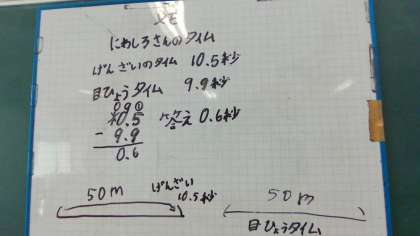 にわしろさんのタイム
げんざいのタイム 10.5秒
目ひょうタイム 9.9秒
09①
10.5 答え 0.6秒
- 9.9
0.6
50m げんざい 10.5秒
50m
目ひょうタイム